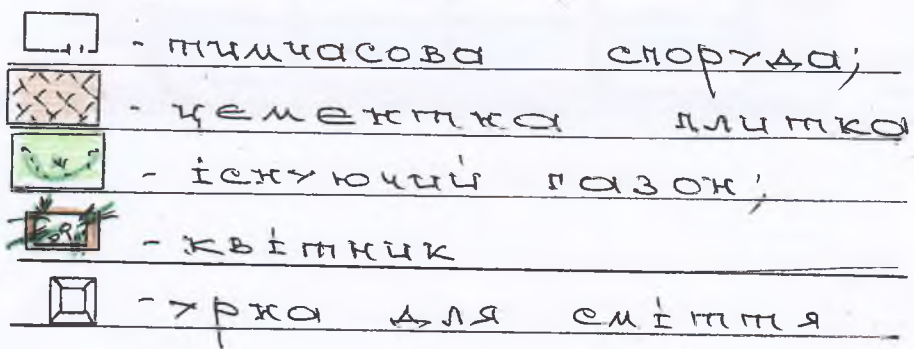 - тимчасова споруда;
- цементна плитка
- існуючий газон;
- квітник
- урна для сміття